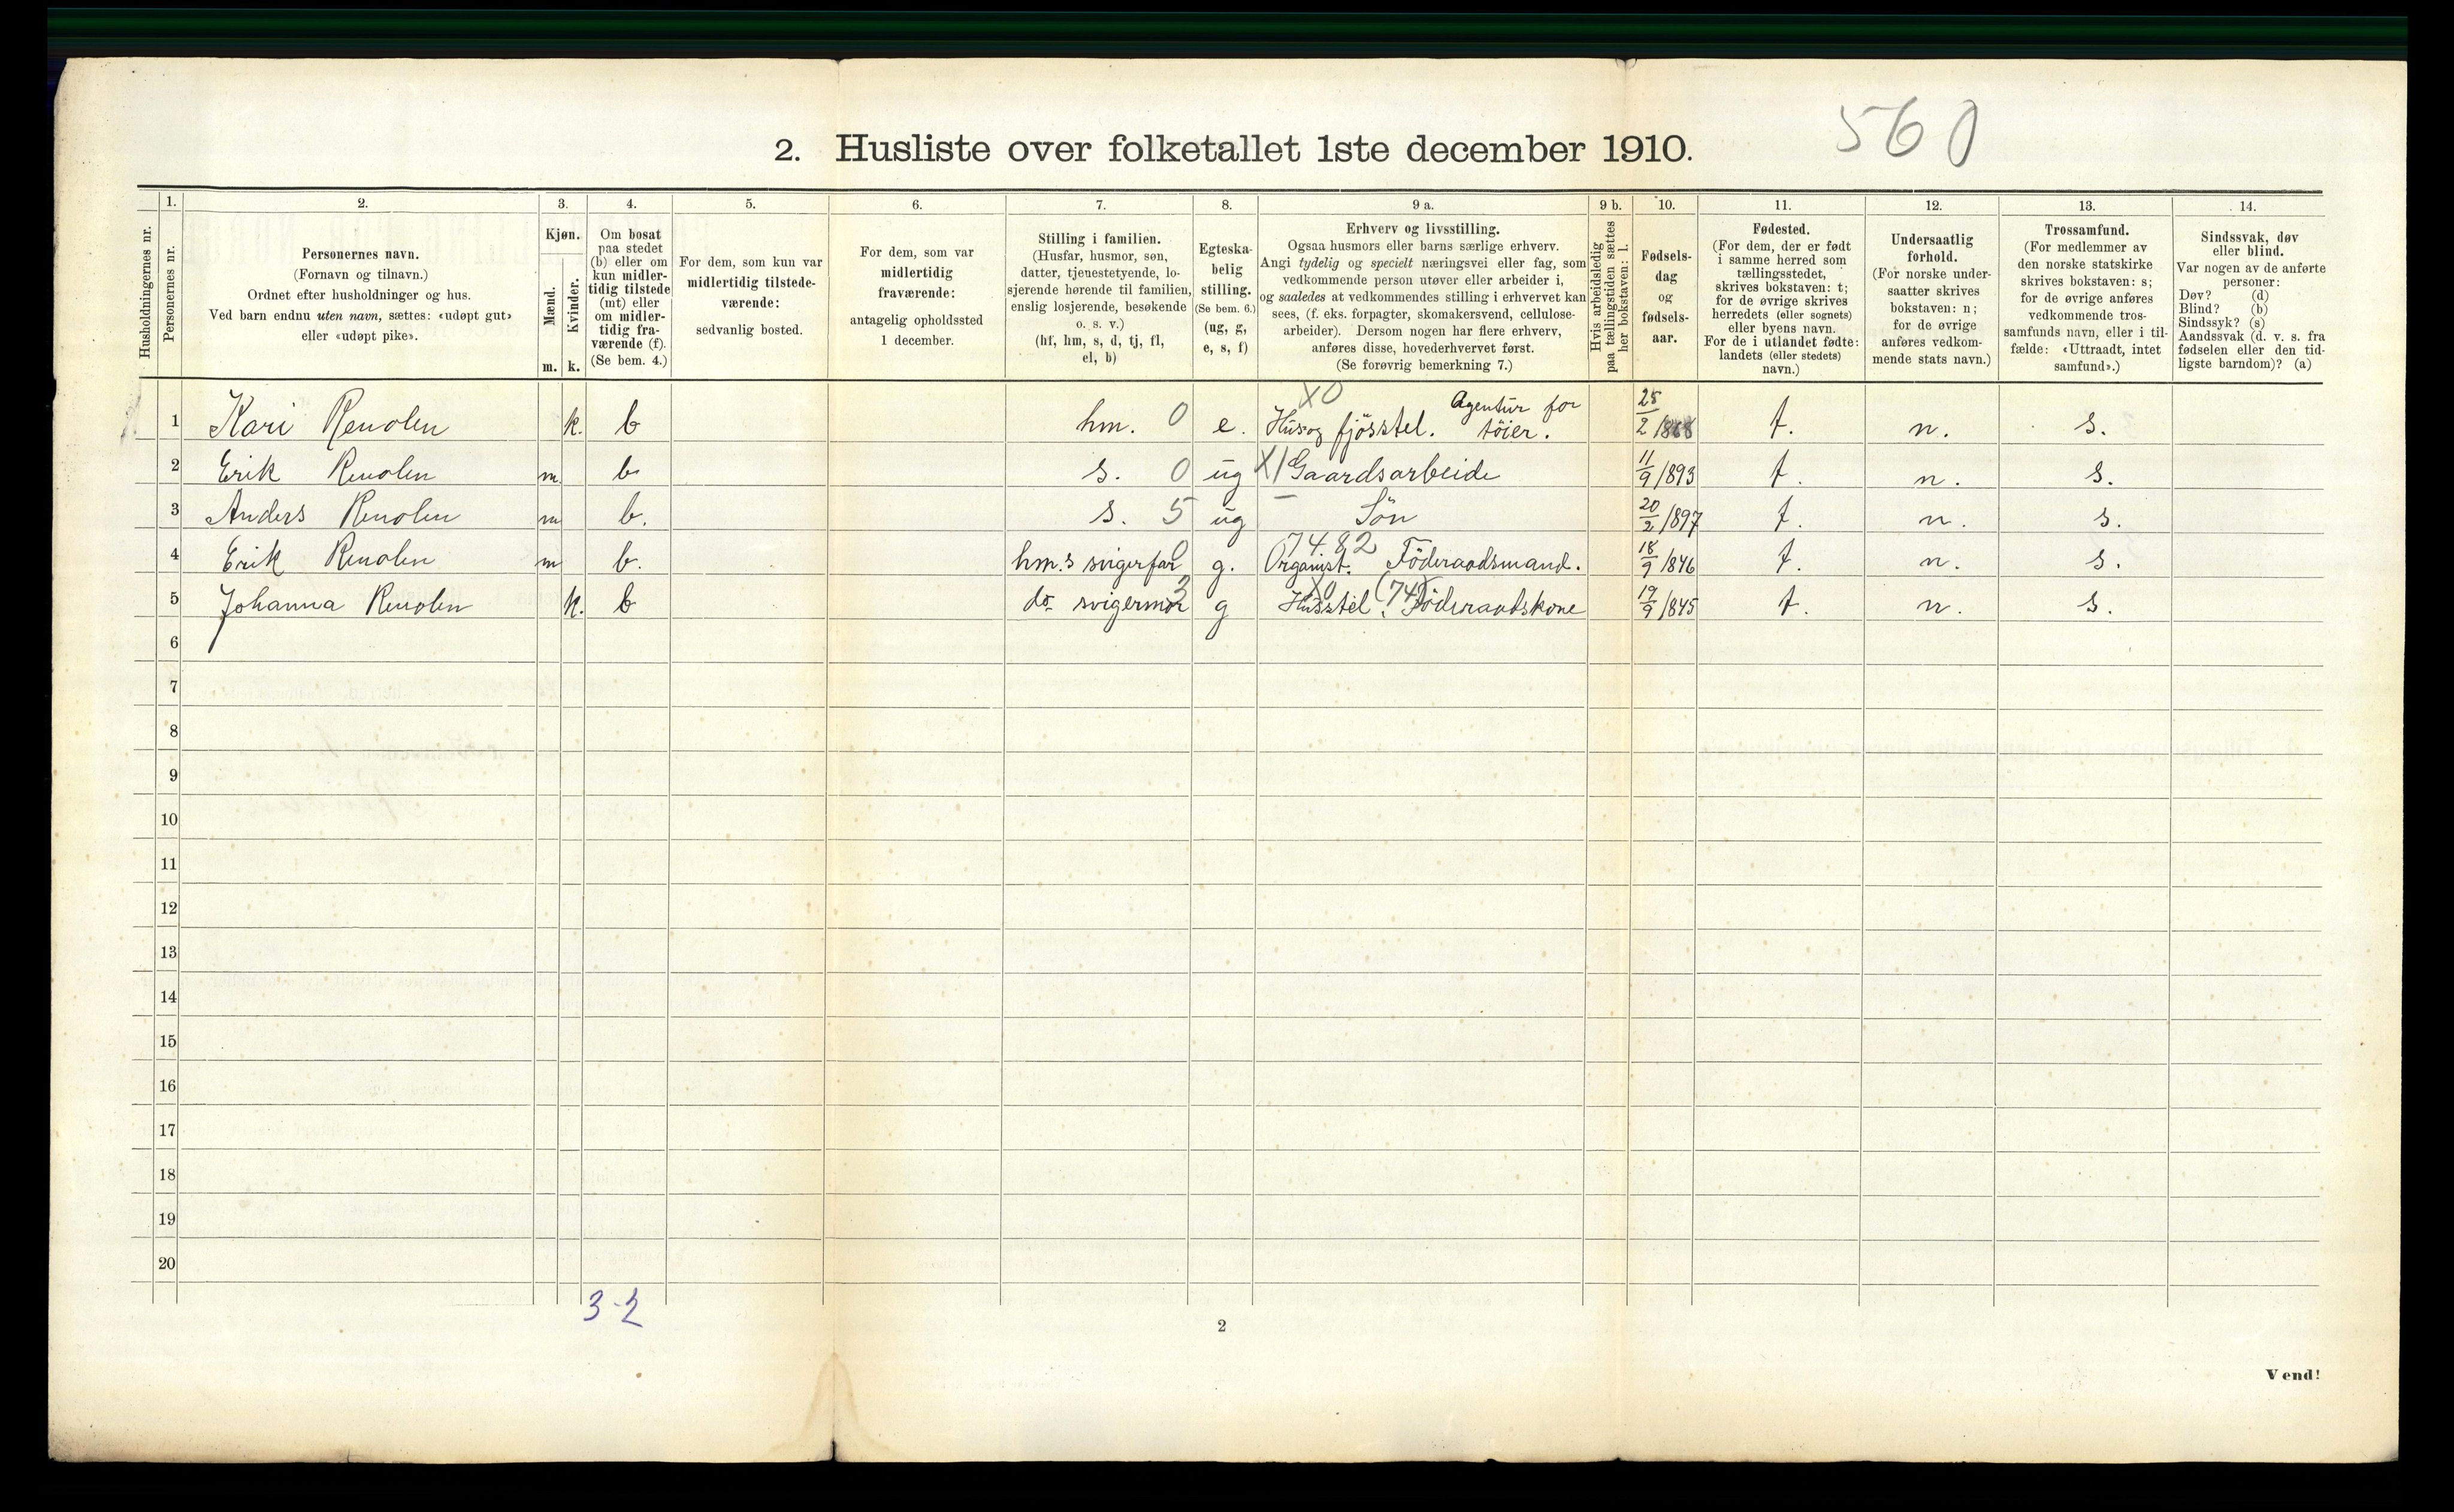 560
2. Husliste over folketallet 1ste december 1910.
Husholdningernes nr.
1.
Personernes nr.
2.
Personernes navn.
(Fornavn og tilnavn.)
Ordnet efter husholdninger og hus.
Ved barn endnu uten navn, sættes: «udøpt gut»
eller «udøpt pike».
3.
Kjøn.
Mænd.
Kvinder.
m. k.
4.
Om bosat
paa stedet
(b) eller om
kun midler-
tidig tilstede
(mt) eller
om midler-
tidig fra-
værende (f).
(Se bem. 4.)
5.
For dem, som kun var
midlertidig tilstede-
værende:
sedvanlig bosted.
6.
For dem, som var
midlertidig
fraværende:
antagelig opholdssted
1 december.
7.
Stilling i familien.
(Husfar, husmor, søn,
datter, tjenestetyende, lo-
sjerende hørende til familien,
enslig losjerende, besøkende
o. s. v.)
(hf, hm, s, d, tj, fl,
el, b)
8.
Egteska-
belig
stilling.
(Se bem. 6.)
(ug, g,
e, s, f)
9 a.
Erhverv og livsstilling.
Ogsaa husmors eller barns særlige erhverv.
Angi tydelig og specielt næringsvei eller fag, som
vedkommende person utøver eller arbeider i,
og saaledes at vedkommendes stilling i erhvervet kan
sees, (f. eks. forpagter, skomakersvend, cellulose-
arbeider). Dersom nogen har flere erhverv,
anføres disse, hovederhvervet først.
(Se forøvrig bemerkning 7.)
9 b.
Hvis arbeidsledig
paa tællingstiden sættes
her bokstaven: l.
10.
Fødsels-
dag
og
fødsels-
aar.
11.
Fødested.
(For dem, der er født
i samme herred som
tællingsstedet,
skrives bokstaven: t;
for de øvrige skrives
herredets (eller sognets)
eller byens navn.
For de i utlandet fødte:
landets (eller stedets)
navn.)
12.
Undersaatlig
forhold.
(For norske under-
saatter skrives
bokstaven: n;
for de øvrige
anføres vedkom-
mende stats navn.)
13.
Trossamfund.
(For medlemmer av
den norske statskirke
skrives bokstaven: s;
for de øvrige anføres
vedkommende tros-
samfunds navn, eller i til-
fælde: «Uttraadt, intet
samfund».)
14.
Sindssvak, døv
eller blind.
Var nogen av de anførte
personer:
Døv? (d)
Blind? (b)
Sindssyk? (s)
Aandssvak (d. v. s. fra
fødselen eller den tid-
ligste barndom)? (a)
1 Kari Renolen k. b hm. 0 e. X0 Hus og fjösstel. Agentur for töier. 25/2 1868 t. n. s.
2 Erik Renolen m b s. 0 ug X1 Gaardsarbeide 11/9 1893 t. n. s.
3 Anders Renolen m b. s. 5 ug — Sön 20/2 1897 t. n. s.
4 Erik Renolen m b. hm.s svigerfar 0 g. 7482 Organist. Föderaadsmand. 18/9 1846 t. n. s.
5 Johanna Renolen k. b do svigermor 3 g X0 (74) Husstel. Föderaadskone 19/9 1845 t. n. s.
6
7
8
9
10
11
12
13
14
15
16
17
18
19
20
3-2
2
Vend!